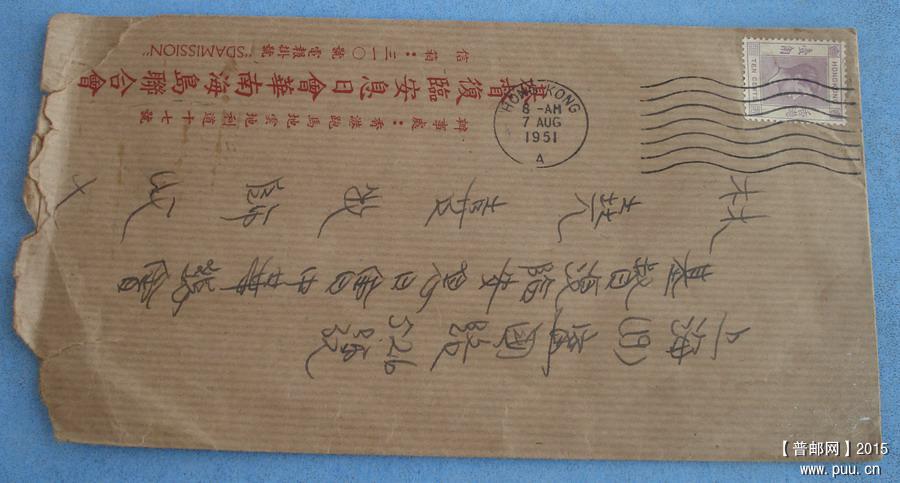 上海(19)寧國路526號
基督復臨安息日會中華總會
林堯喜牧師 收
辦事處：香港跑馬地雲地利道十七號
基督復臨安息日會華南海島聯合會
信箱：三一〇號 電報掛號 "SDAMISSION"
HONG KONG
8-AM
7 AUG
1951
A
HONG KONG
壹角
TEN CENTS
【普邮网】2015
www.puu.cn